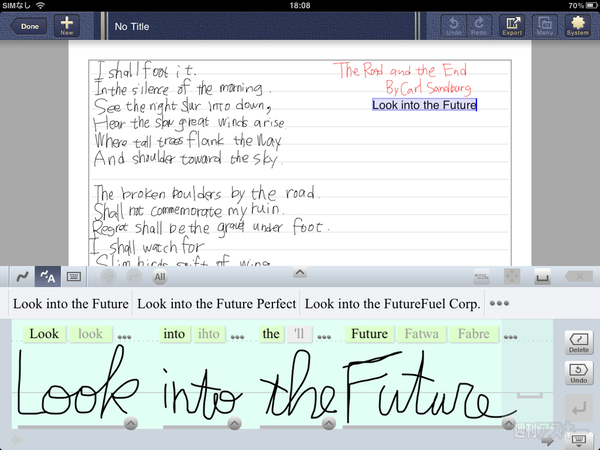 SIMなし 18:08 70%
Done New No Title Undo Redo Export Menu System
I shall foot it.
In the silence of the morning.
See the night slur into down,
Hear the slow great winds arise
Where tall trees flank the way
And shoulder toward the sky.
The Road and the End
By Carl Sandburg
Look into the Future
The broken boulders by the road.
Shall not commemorate my ruin.
Regret shall be the gravel under foot.
I shall watch for
Slim birds swift of wing
All
Look into the Future Look into the Future Perfect Look into the FutureFuel Corp.
Look look into ihto the 'll Future Fatwa Fabre
Look into the Future
Delete
Undo
週刊アスキー